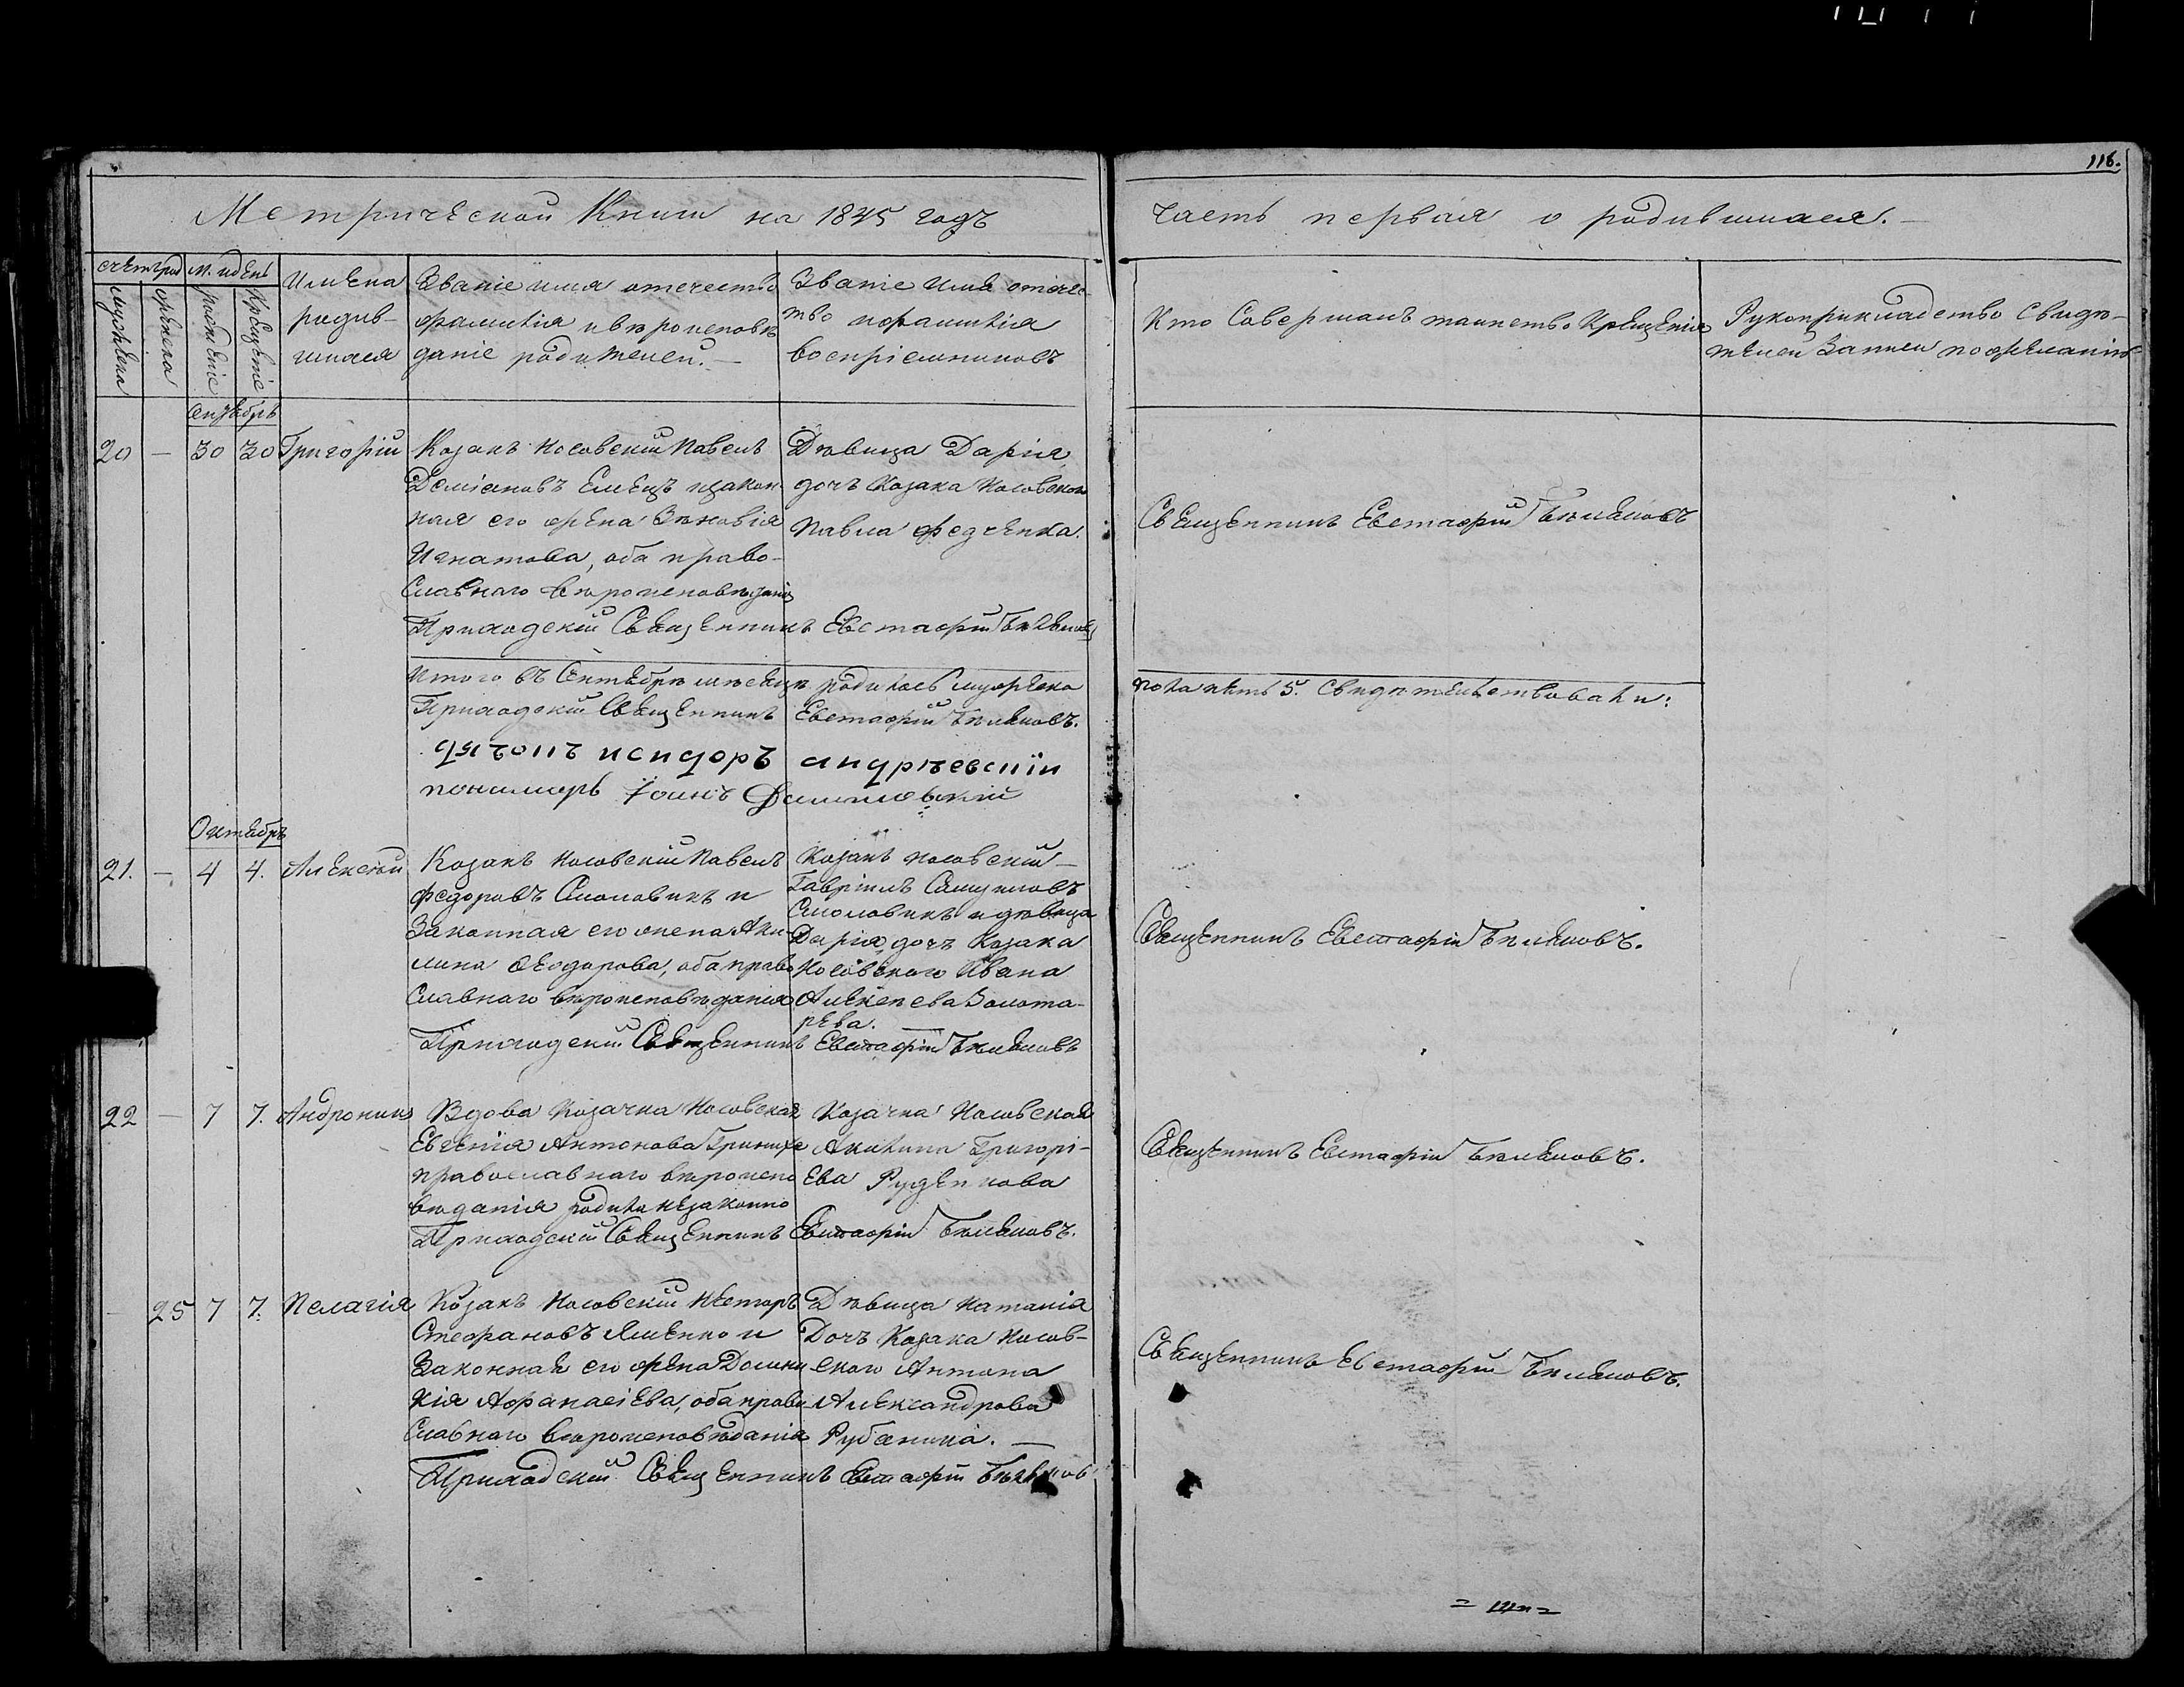 116.
Метрической Книги на 1845 годъ часть первая о родившихся.
счетъ род М. и день
мужеска
женска
рожденіе
крещеніе
Имена
родив-
шихся
Званіе имя отечество
фамилія и вѣроисповѣ
даніе родителей.
Званіе имя отече-
тво и фамилія
воспріемниковъ
Кто Совершалъ таинство Крещенія
Рукоприкладство Свидѣ-
телей Записи по желанію
Сентябрь
20 — 30 30 Григорій
Козакъ Носовскій Павелъ
Даміановъ Емецъ и закон-
ная его жена Зѣновія
Игнатова, оба право-
Славнаго вѣроисповѣданія
Приходскій Священникъ Евстафій Бѣляковъ
Дѣвица Дарія,
дочь Козака Носовскаго
Павла Федченка.
Священникъ Евстафій Бѣляковъ
Итого въ Сентябрѣ мѣсяцѣ родилось мужеска
пола пять 5. Свидѣтельствовали:
Приходскій Священникъ Евстафій Бѣляковъ.
дьячокъ исидоръ андрѣевскій
пономарь Іоанъ
Октябрь
21. — 4 4. Алексѣй
Козакъ Носовскій Павелъ
Федоровъ Смоловикъ и
Законная его жена Аку-
лина Ѳеодорова, оба право
Славнаго вѣроисповѣданія
Приходскій Священникъ Евстафій Бѣляковъ
Козакъ носовскій —
Гавріилъ Самуиловъ
Смоловикъ и дѣвица
Дарія дочь Козака
Носовскаго Ивана
Алексѣева Золота-
рева.
Священникъ Евстафій Бѣляковъ.
22 — 7 7. Андроникъ
Вдова Козачка Носовская
Евгенія Антонова
православнаго вѣроиспо
вѣданія родила незаконно
Приходскій Священникъ Евстафій Бѣляковъ.
Козачка Носовская
Акилина Григорі-
ева Руденкова
Священникъ Евстафій Бѣляковъ.
— 25 7 7. Пелагія
Козакъ Носовскій Несторъ
Стефановъ Яменко и
Законная его жена Домни
кія Афанасіева, оба право
Славнаго вѣроисповѣданія
Приходскій Священникъ Евстафій Бѣляковъ
Дѣвица Наталія
Дочь Козака Носов-
скаго Антона
Александрова
Рубаника. —
Священникъ Евстафій Бѣляковъ.